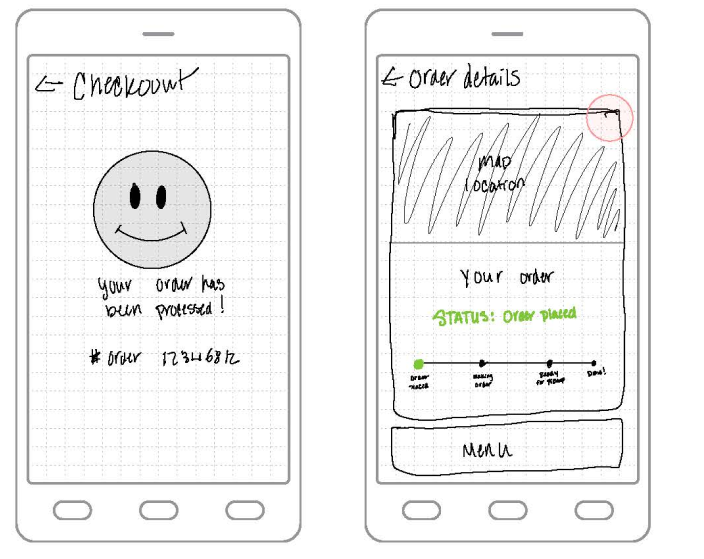 ← Checkout
your order has
been processed!
# order 12346812
← Order details
map
location
Your order
STATUS: Order placed
Order placed
Making order
Ready for pickup
Done!
Menu